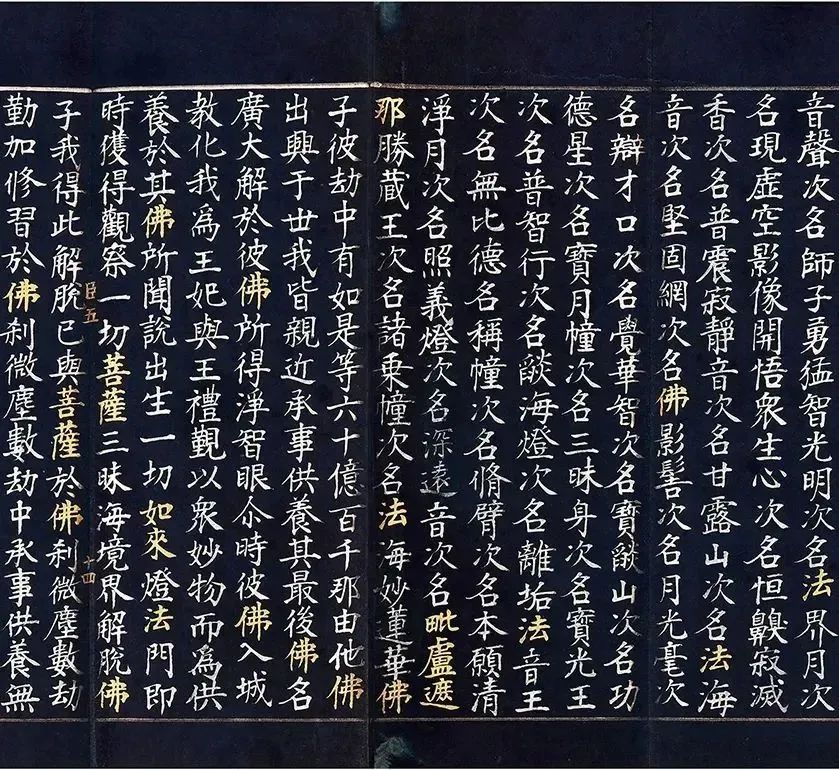 音聲次名師子勇猛智光明次名法界月次
名現虛空影像開悟衆生心次名恒齅寂滅
香次名普震寂靜音次名甘露山次名法海
音次名堅固網次名佛影髻次名月光毫次
名辯才口次名覺華智次名寶燄山次名功
德星次名寶月幢次名三昧身次名寶光王
次名普智行次名燄海燈次名離垢法音王
次名無比德名稱幢次名脩臂次名本願清
淨月次名照義燈次名深遠音次名毗盧遮
那勝蔵王次名諸乗幢次名法海妙蓮華佛
子彼劫中有如是等六十億百千那由他佛
出興于世我皆親近承事供養其最後佛名
廣大解於彼佛所得淨智眼尒時彼佛入城
教化我爲王妃與王禮覲以衆妙物而爲供
養於其佛所聞說出生一切如來燈法門即
時獲得觀察一切菩薩三昧海境界解脫佛
臣五
十四
子我得此解脫已與菩薩於佛刹微塵數劫
勤加修習於佛刹微塵數劫中承事供養無